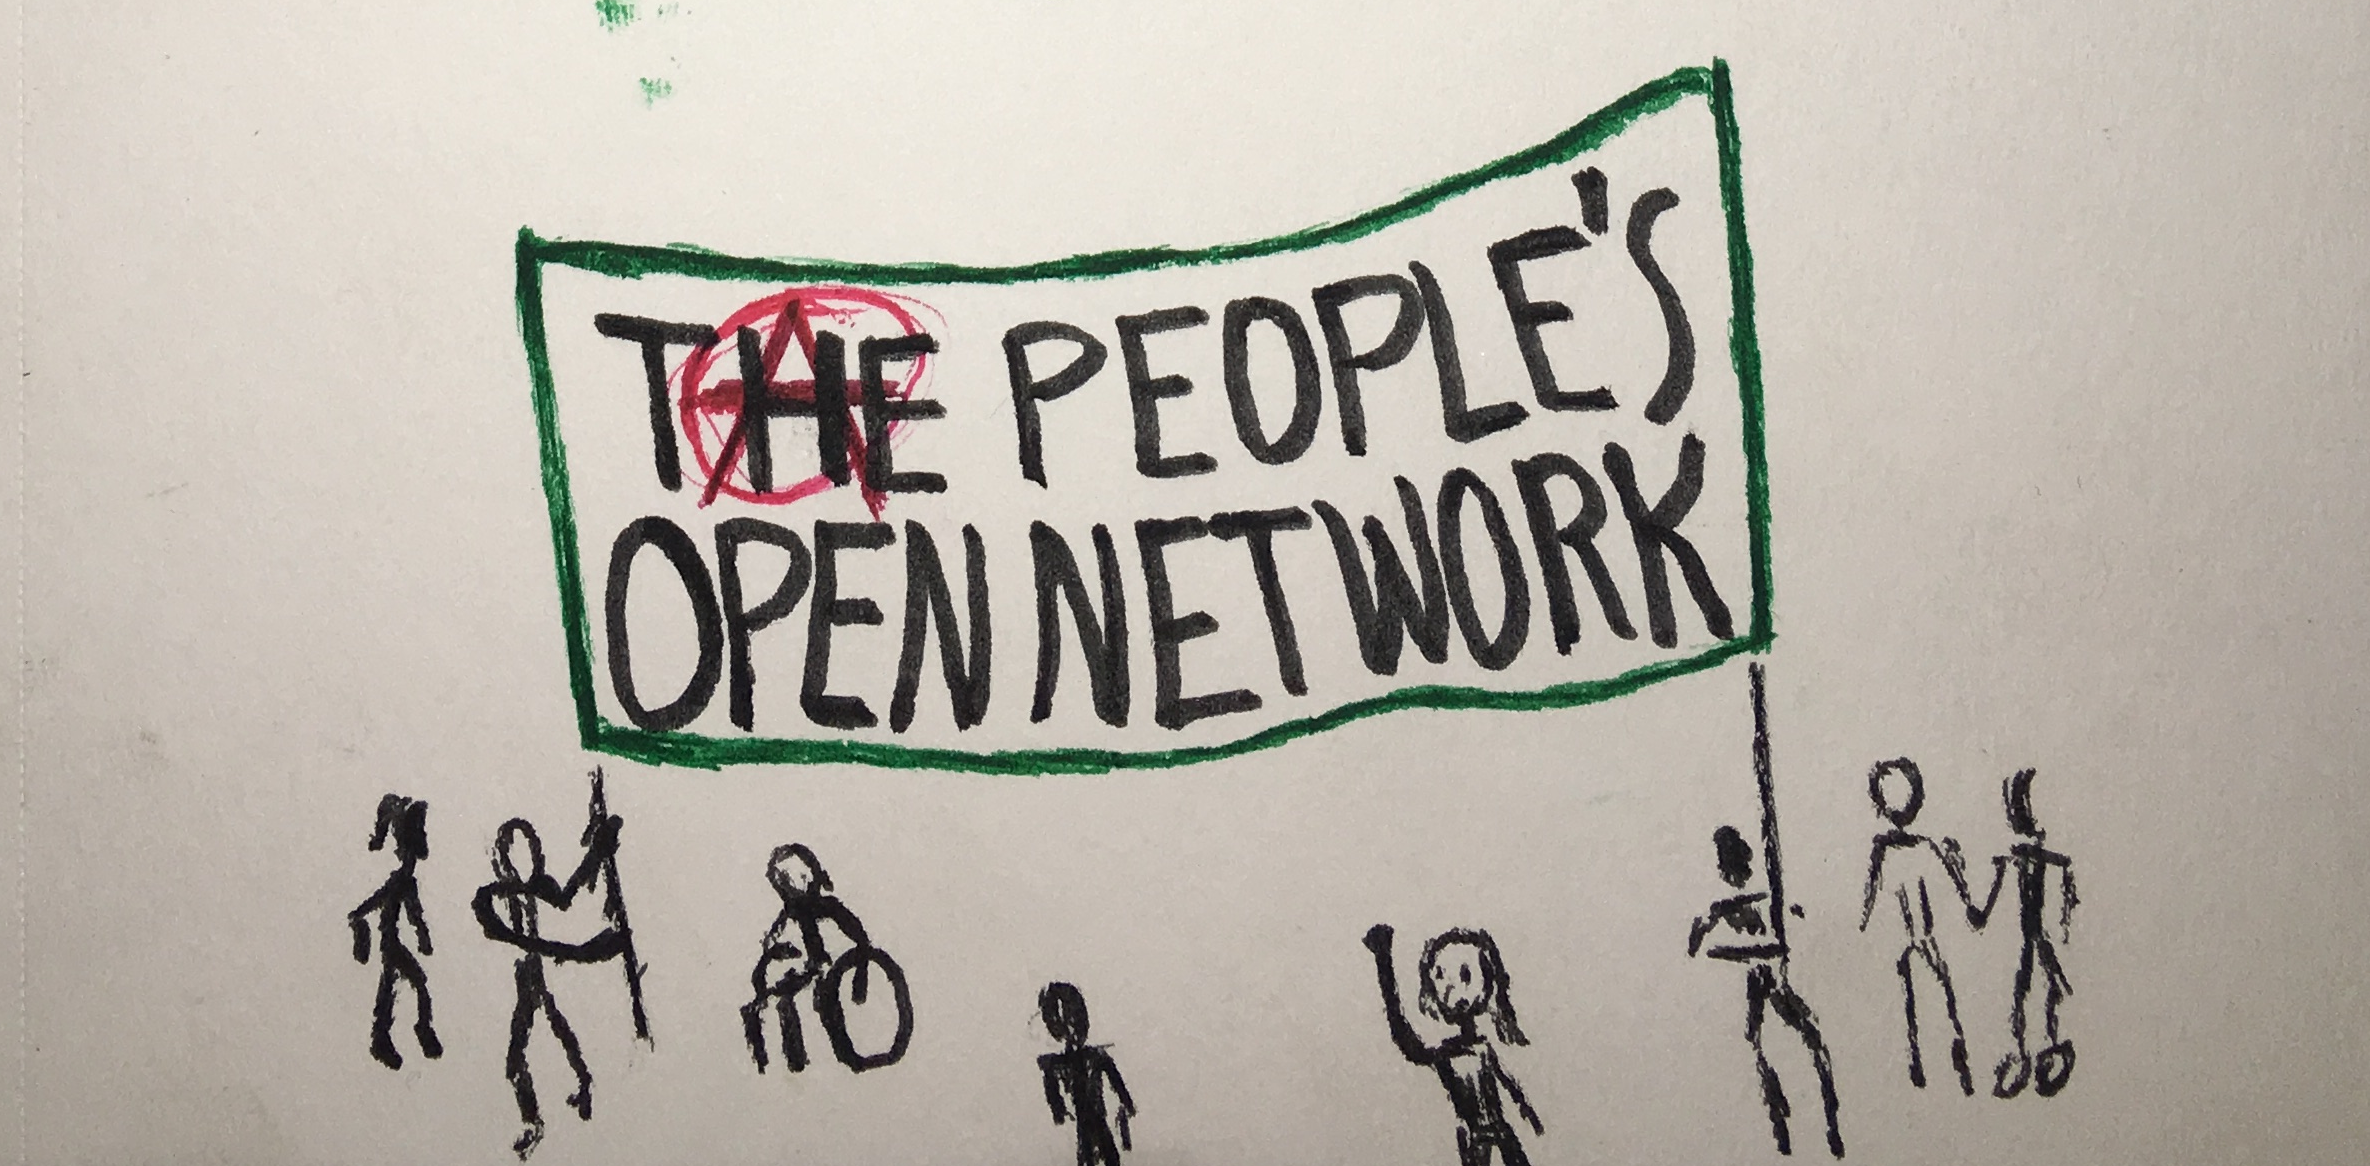 THE PEOPLE'S
OPEN NETWORK